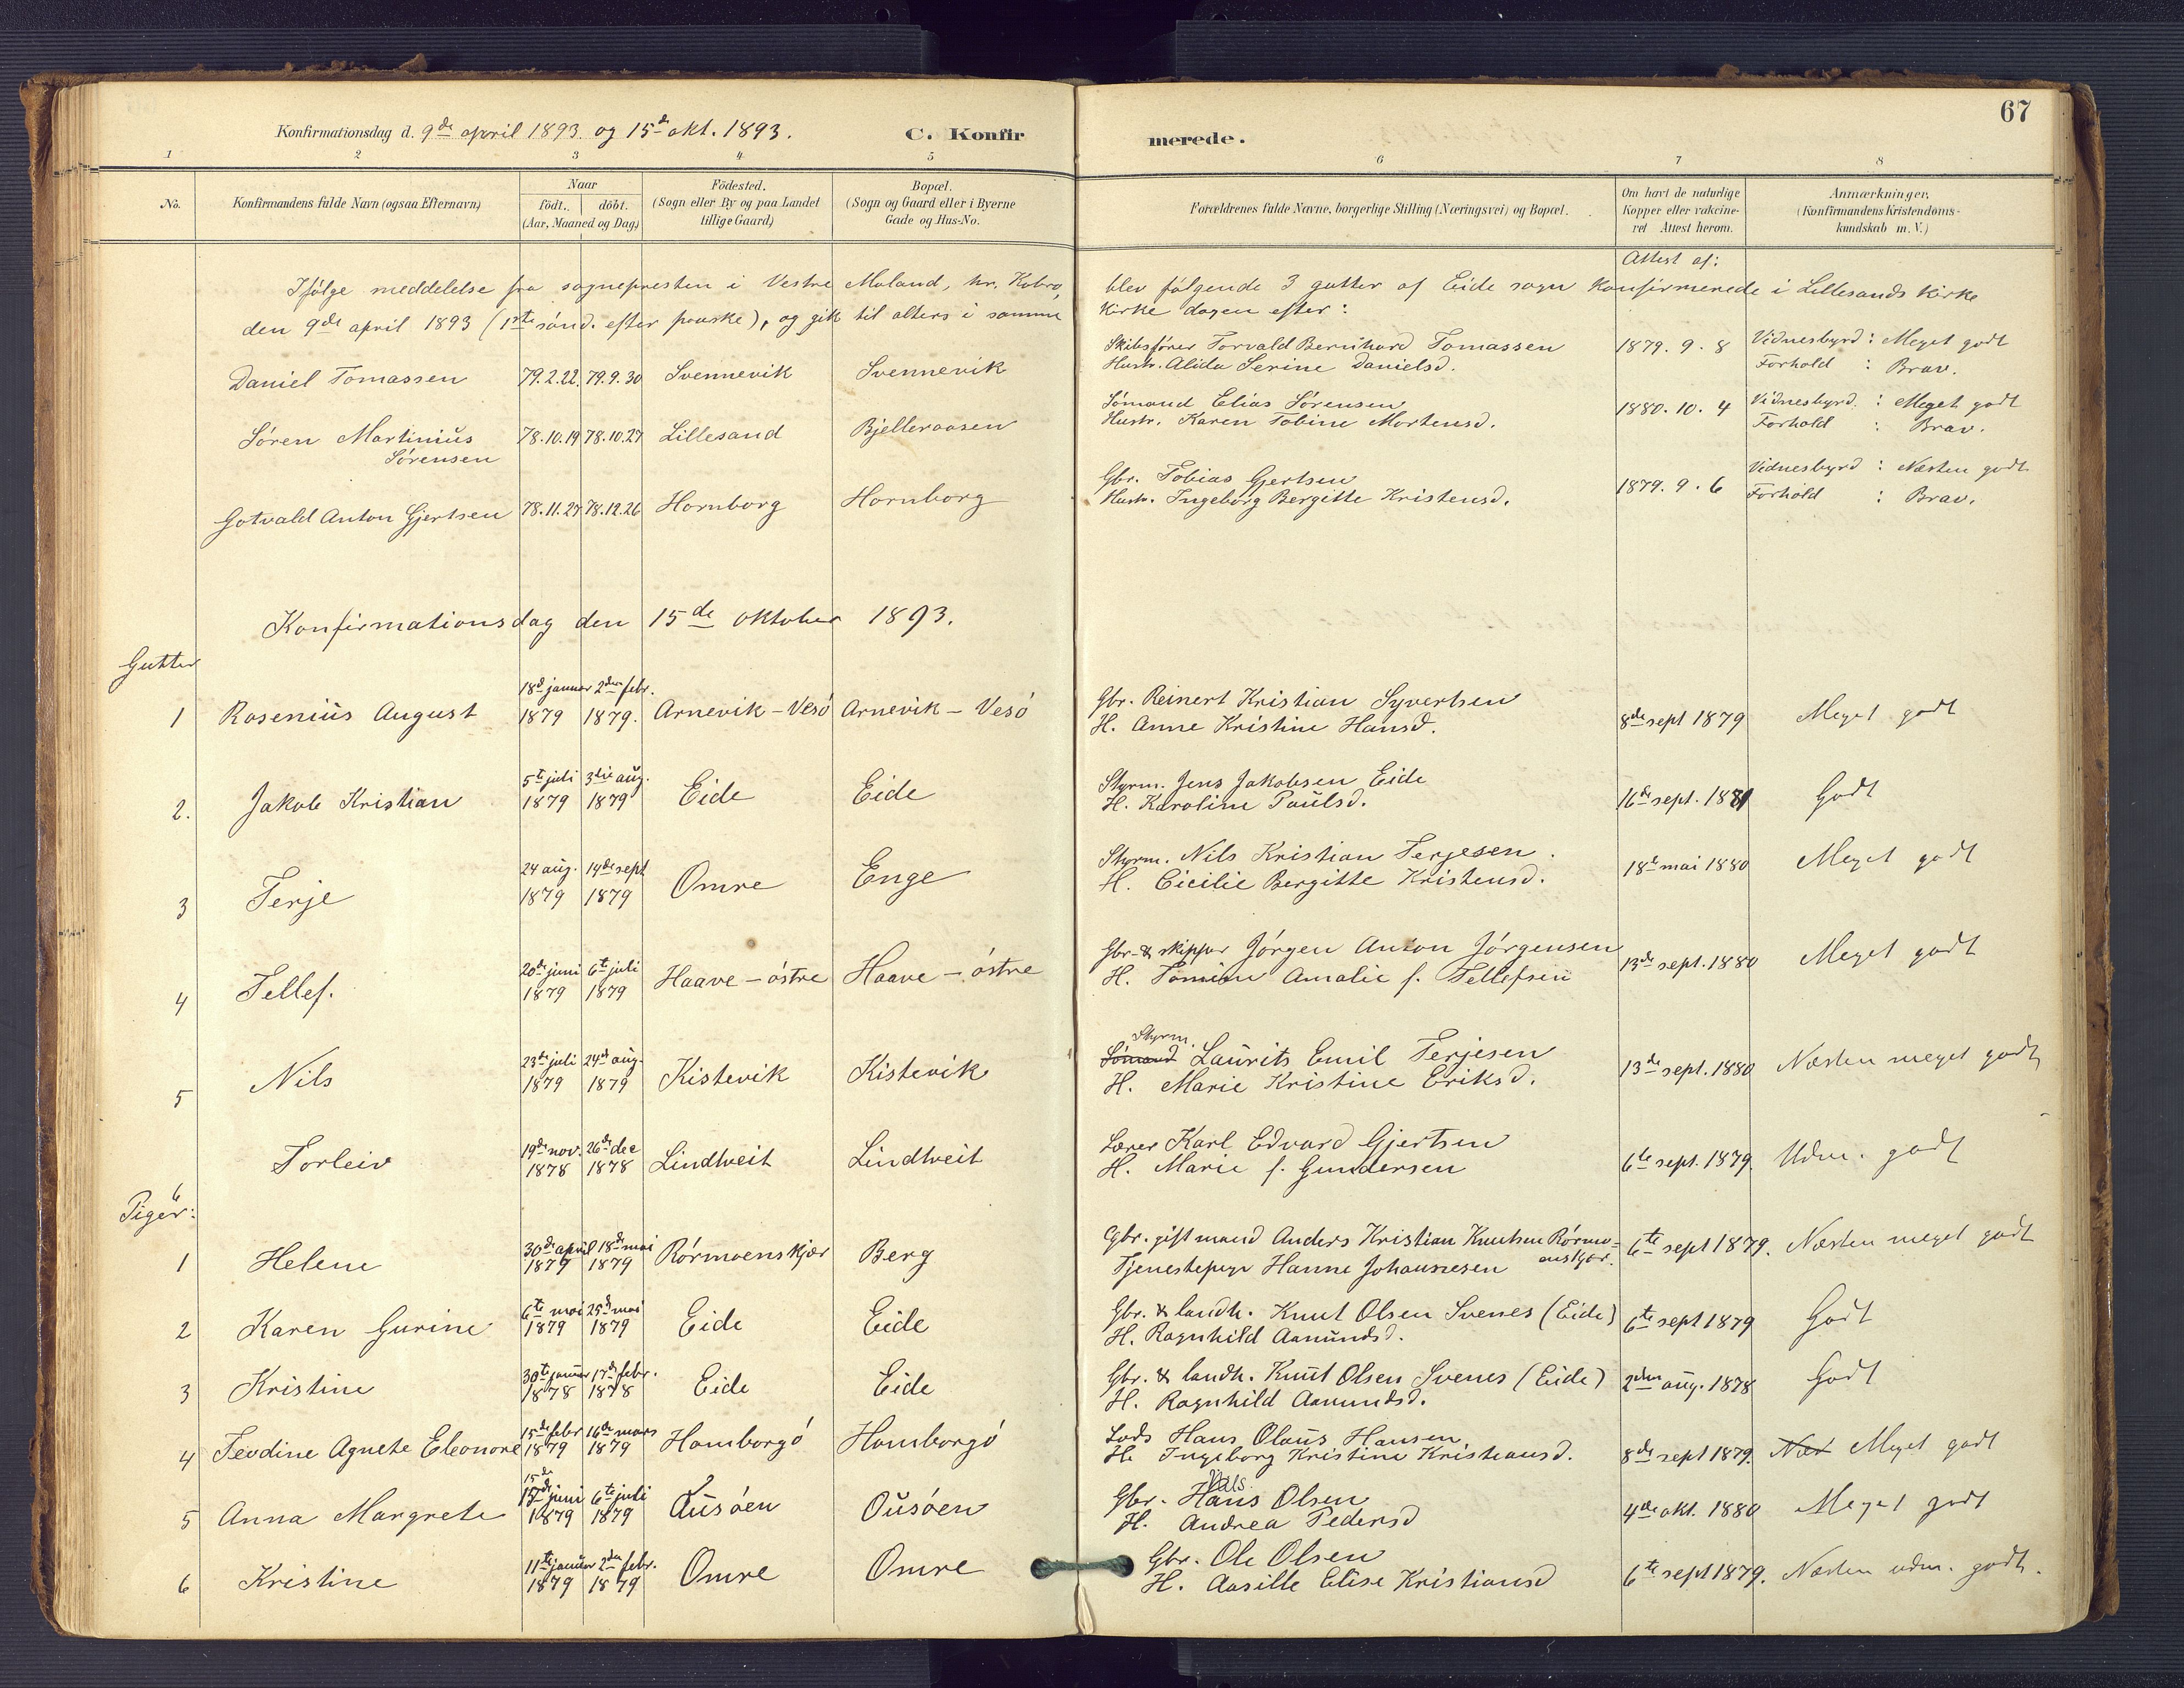 67
Konfirmationsdag d. 9de april 1893 og 15de okt. 1893. C. Konfirmerede.
1 2 3 4 5 6 7 8
No. Konfirmandens fulde Navn (ogsaa Efternavn) Naar Födt. döbt. (Aar, Maaned og Dag) Födested. (Sogn eller By og paa Landet tillige Gaard) Bopæl. (Sogn og Gaard eller i Byerne Gade og Hus-No. Forældrenes fulde Navne, borgerlige Stilling (Næringsvei) og Bopæl. Om havt de naturlige Kopper eller vakcineret Attest herom. Anmærkninger, (Konfirmandens Kristendomskundskab m. V.)
Attest af:
Ifölge meddelelse fra sognepresten i Vestre Moland, hr. Kobro, blev fölgende 3 gutter af Eide sogn konfirmerede i Lillesands kirke
den 9de april 1893 (1ste sönd. efter paaske), og gik til alters i samme kirke dagen efter:
Daniel Tomassen 79.2.22. 79.9.30 Svennevik Svennevik Skibsförer Torvald Bernhard Tomassen 1879. 9. 8 Vidnesbyrd: Meget godt
Hustr. Alida Serine Danielsd. Forhold : Brav.
Sören Martinius Sörensen 78.10.19 78.10.27 Lillesand Bjelleraasen Sömand Elias Sörensen 1880. 10. 4 Vidnesbyrd.: Meget godt
Hustr. Karen Tobine Mortensd. Forhold : Brav.
Gotvald Anton Gjertsen 78.11.27 78.12.26 Hornborg Hornborg Gbr. Tobias Gjertsen 1879. 9. 6 Vidnesbyrd: Næsten godt
Hustr. Ingeborg Bergitte Kristensd. Forhold : Brav.
Konfirmationsdag den 15de oktober 1893.
Gutter
1 Rosenius August 18de januar 1879 2den febr. 1879. Arnevik - Vesö Arnevik - Vesö Gbr. Reinert Kristian Syvertsen 8de sept 1879 Meget godt
H. Anne Kristine Hansd.
2. Jakob Kristian 5te juli 1879 3die aug. 1879 Eide Eide Styrm. Jens Jakobsen Eide 16de sept. 1881 Godt
H. Karoline Paulsd.
3 Terje 24 aug. 1879 14de sept 1879 Omre Enge Styrm. Nils Kristian Terjesen. 18de mai 1880 Meget godt
H. Cicilie Bergitte Kristensd.
4 Tellef. 20de juni 1879 6te juli 1879 Haave - östre Haave - östre Gbr. & skipper Jörgen Anton Jörgensen 13de sept. 1880 Meget godt
H. Tomine Amalie f. Tellefsen
5 Nils 23de juli 1879 24de aug. 1879 Kistevik Kistevik Styrm.
Sömand Laurits Emil Terjesen 13de sept. 1880 Næsten meget godt
H. Marie Kristine Eriksd.
6 Torleiv 19de nov. 1878 26de dec 1878 Lindtveit Lindtveit Lærer Karl Edvard Gjertsen 6te sept. 1879. Udm. godt
H. Marie f. Gundersen
Piger:
1 Helene 30de april 1879 18de mai 1879 Rörmoenskjær Berg Gbr. gift mand Anders Kristian Knutsen Rörmoenskjær. 6te sept 1879. Næsten meget godt
Tjenestepige Hanne Johannesen
2 Karen Gurine 6te mai 1879 25de mai 1879 Eide Eide Gbr. & landh. Knut Olsen Svenes (Eide) 6te sept 1879 Godt
H. Ragnhild Aanundsd.
3 Kristine 30te januar 1878 17de febr. 1878 Eide Eide Gbr. & landh. Knut Olsen Svenes (Eide) 2den aug. 1878 Godt
H. Ragnhild Aanundsd.
4 Teodine Agnete Eleonore 15de febr 1879 16de mars 1879 Homborgö Homborgö Lods Hans Olaus Hansen 8de sept 1879. Næs Meget godt
H. Ingeborg Kristine Kristiansd.
5 Anna Margrete 15de juni 1879 6te juli 1879 Ousöen Ousöen Gbr. Hans Nils Olsen 4de okt. 1880 Meget godt
H. Andrea Pedersd
6 Kristine 11te januar 1879 2den febr. 1879 Omre Omre Gbr. Ole Olsen 6te sept 1879. Næsten udm. godt.
H. Aasille Elise Kristiansd